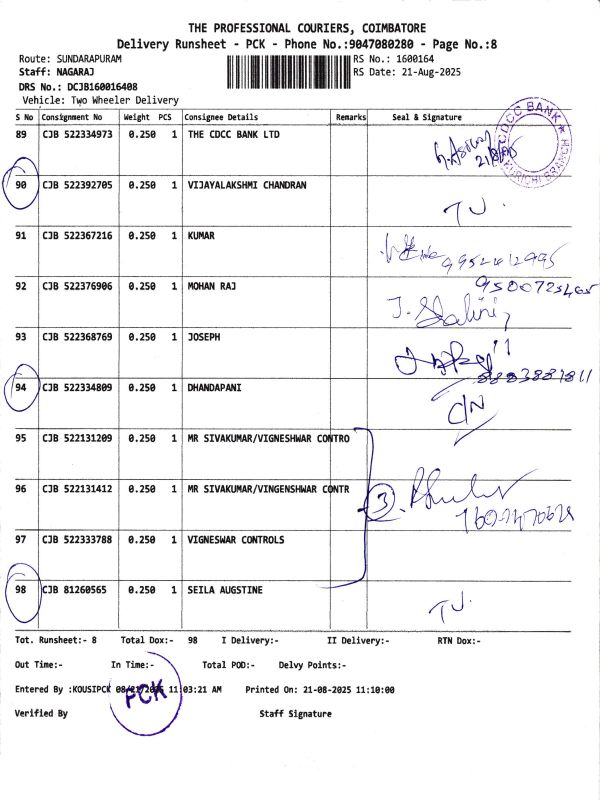 THE PROFESSIONAL COURIERS, COIMBATORE
Delivery Runsheet - PCK - Phone No.:9047080280 - Page No.:8
Route: SUNDARAPURAM RS No.: 1600164
Staff: NAGARAJ RS Date: 21-Aug-2025
DRS No.: DCJB160016408
Vehicle: Two Wheeler Delivery
S No Consignment No Weight PCS Consignee Details Remarks Seal & Signature
89 CJB 522334973 0.250 1 THE CDCC BANK LTD
CDCC BANK
KURICHI BRANCH
90 CJB 522392705 0.250 1 VIJAYALAKSHMI CHANDRAN
91 CJB 522367216 0.250 1 KUMAR
92 CJB 522376906 0.250 1 MOHAN RAJ
J. Shalini
93 CJB 522368769 0.250 1 JOSEPH
94 CJB 522334809 0.250 1 DHANDAPANI
C/N
95 CJB 522131209 0.250 1 MR SIVAKUMAR/VIGNESHWAR CONTRO
96 CJB 522131412 0.250 1 MR SIVAKUMAR/VINGENSHWAR CONTR
3
97 CJB 522333788 0.250 1 VIGNESWAR CONTROLS
98 CJB 81260565 0.250 1 SEILA AUGSTINE
Tot. Runsheet:- 8 Total Dox:- 98 I Delivery:- II Delivery:- RTN Dox:-
Out Time:- In Time:- Total POD:- Delvy Points:-
Entered By :KOUSIPCK 08/21/2025 11:03:21 AM Printed On: 21-08-2025 11:10:00
PCK
Verified By Staff Signature